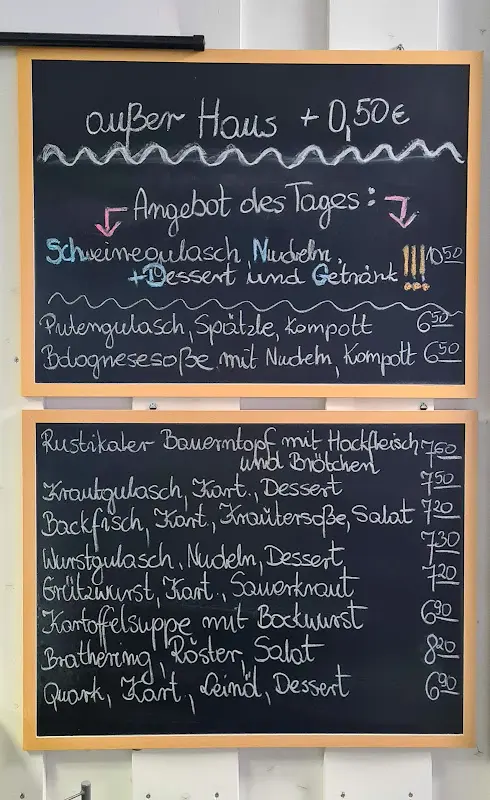 außer Haus + 0,50 €
Angebot des Tages:
Schweinegulasch, Nudeln, !!! 10 50
+ Dessert und Getränk
Putengulasch, Spätzle, Kompott 6 50
Bolognesesoße mit Nudeln, Kompott 6 50
Rustikaler Bauerntopf mit Hackfleisch 7 60
und Brötchen
Krautgulasch, Kart., Dessert 7 50
Backfisch, Kart., Kräutersoße, Salat 7 20
Wurstgulasch, Nudeln, Dessert 7 30
Grützwurst, Kart., Sauerkraut 7 20
Kartoffelsuppe mit Bockwurst 6 90
Brathering, Röster, Salat 8 20
Quark, Kart., Leinöl, Dessert 6 90